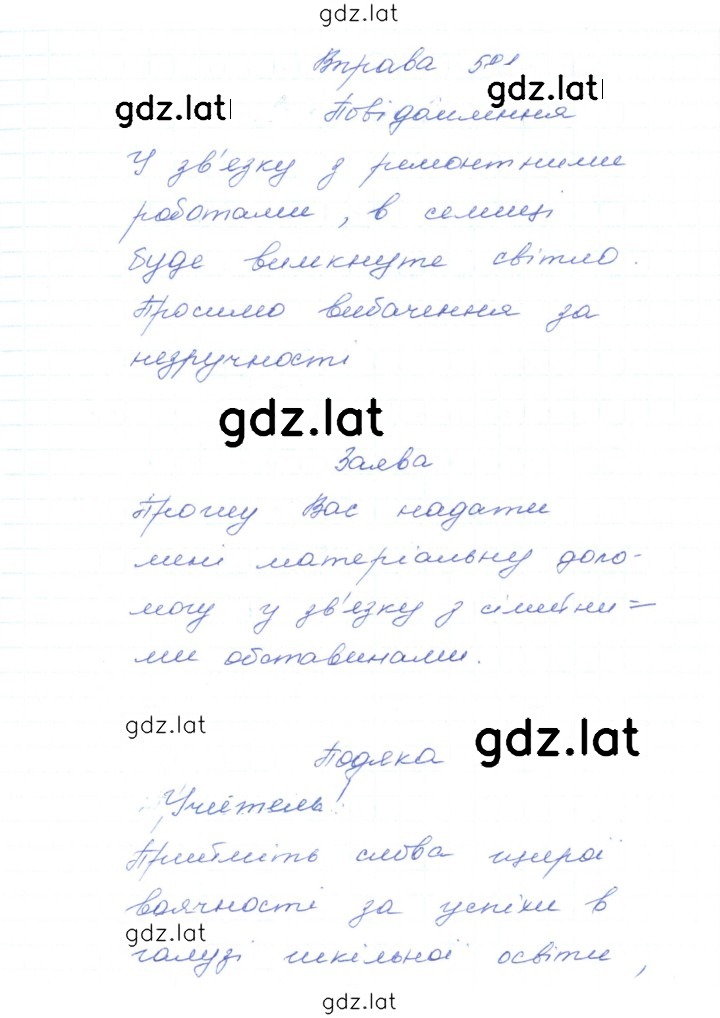 gdz.lat
Вправа 581
gdz.lat gdz.lat
Повідомлення
У зв'язку з ремонтними
роботами, в селищі
буде вимкнуте світло.
Просимо вибачення за
незручності
gdz.lat
Заява
Прошу Вас надати
мені матеріальну допо-
могу у зв'язку з сімейни=
ми обставинами.
gdz.lat
gdz.lat
Подяка
Учитель!
Прийміть слова щирої
вдячності за успіхи в
gdz.lat
галузі шкільної освіти,
gdz.lat